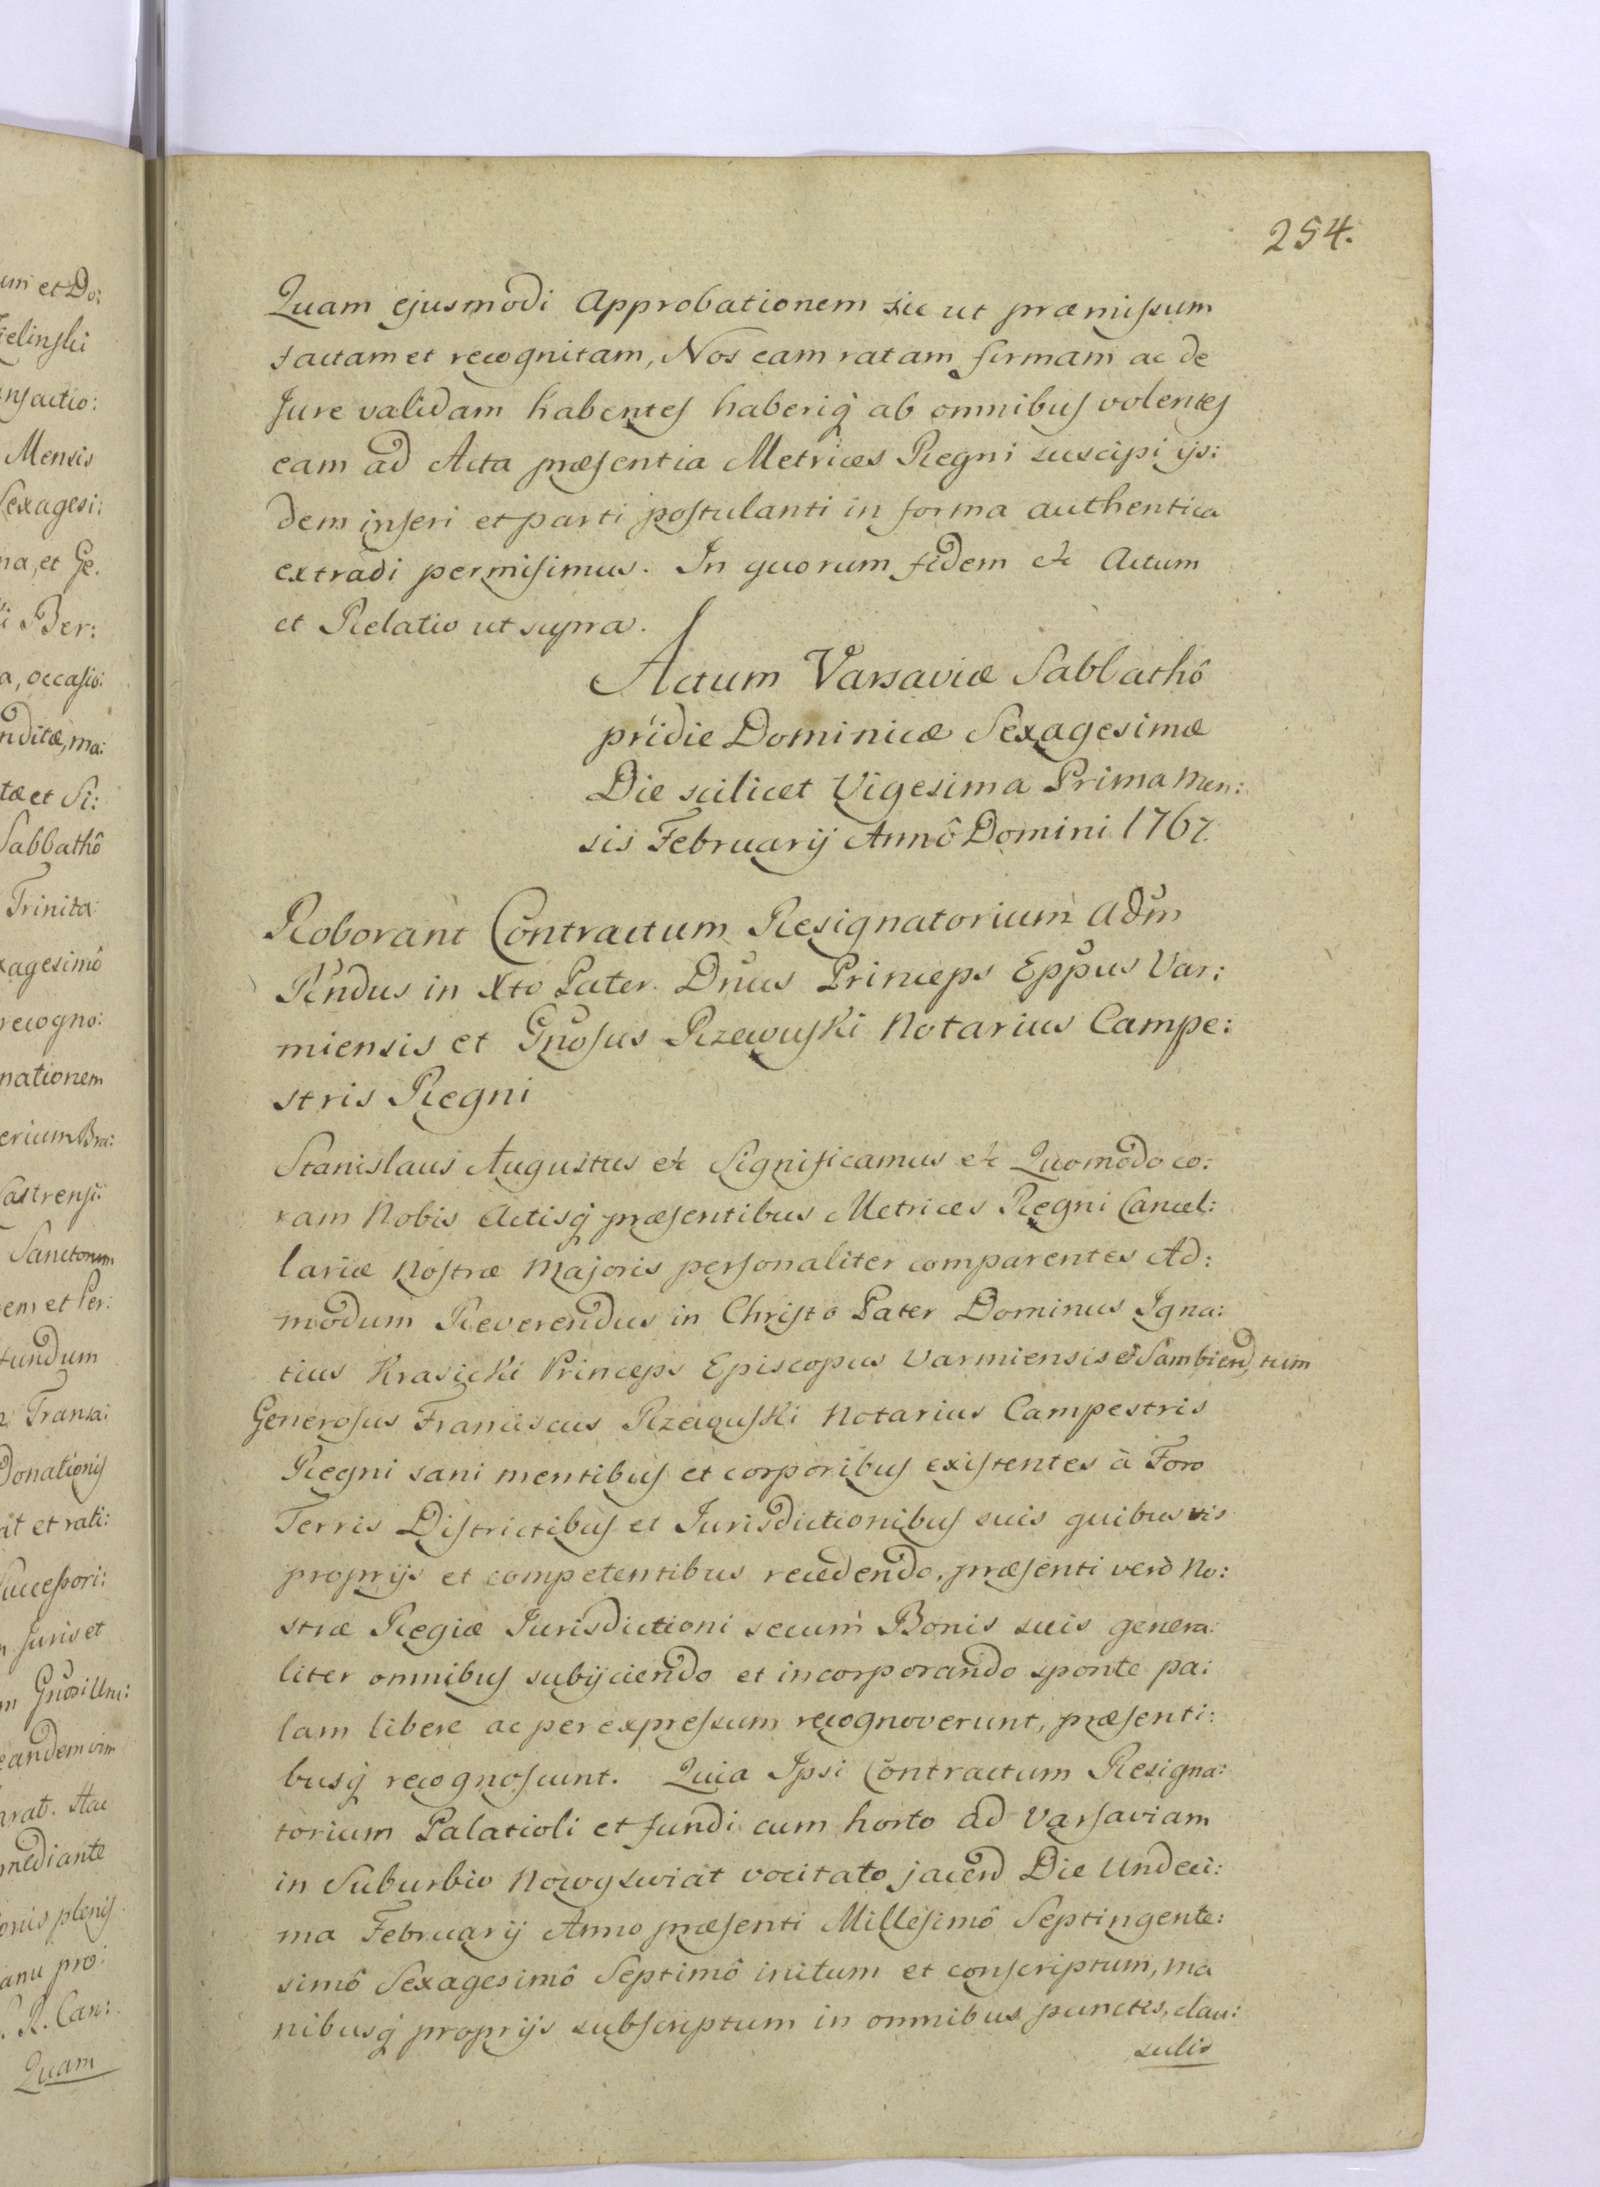 um et Do:
ielinski
nsactio:
Mensis
Sexagesi:
na, et Ge.
i Ber:
a, occasio:
nditæ, ma:
tæ et Si:
Sabbathô
Trinita:
xagesimô
recogno:
nationem
erium Bra:
Castrensi:
Sanctorum
em et Per:
fundum
Transa:
Donationis
at et rati:
Successori:
Juris et
Gnosi Uni:
eandem vim
arat. Hac
mediante
onis plenis
anu pro:
R. Can:
Quam
254.
Quam ejusmodi Approbationem sic ut præmissum
factam et recognitam, Nos eam ratam firmam ac de
Jure validam habentes haberiq̃ ab omnibus volentes
eam ad Acta præsentia Metrices Regni suscipi ijs:
dem inseri et parti postulanti in forma authentica
extradi permisimus. In quorum fidem &c Actum
et Relatio ut supra.
Actum Varsaviæ Sabbathô
pridie Dominicæ Sexagesimæ
Die scilicet Vigesima Prima Men:
sis Februarij Annô Domini 1767.
Roborant Contractum Resignatorium Adm̃
Rndus in Xto Pater Dnus Princeps Eppus Var:
miensis et Gnosus Rzewuski Notarius Campe:
stris Regni
Stanislaus Augustus &c Significamus &c Quomodo co:
ram Nobis Actisq̃ præsentibus Metrices Regni Cancel:
lariæ Nostræ Majoris personaliter comparentes Ad:
modum Reverendus in Christo Pater Dominus Igna:
tius Krasicki Princeps Episcopus Varmiensis et Sambien, tum
Generosus Franciscus Rzewuski Notarius Campestris
Regni sani mentibus et corporibus existentes à Foro
Terris Districtibus et Jurisdictionibus suis quibusvis
proprijs et competentibus recedendo, præsenti verò No:
stræ Regiæ Jurisdictioni secum Bonis suis genera:
liter omnibus subijciendo et incorporando sponte pa:
lam libere ac per expressum recognoverunt, præsenti:
busq̃ recognoscunt. Quia Ipsi Contractum Resigna:
torium Palatioli et fundi cum horto ad Varsaviam
in Suburbio Nowy Swiat vocitato jacen Die Undeci:
ma Februarij Anno præsenti Millesimô Septingente:
simô Sexagesimô Septimô initum et conscriptum, ma
nibusq̃ proprijs subscriptum in omnibus punctis, clau:
sulis